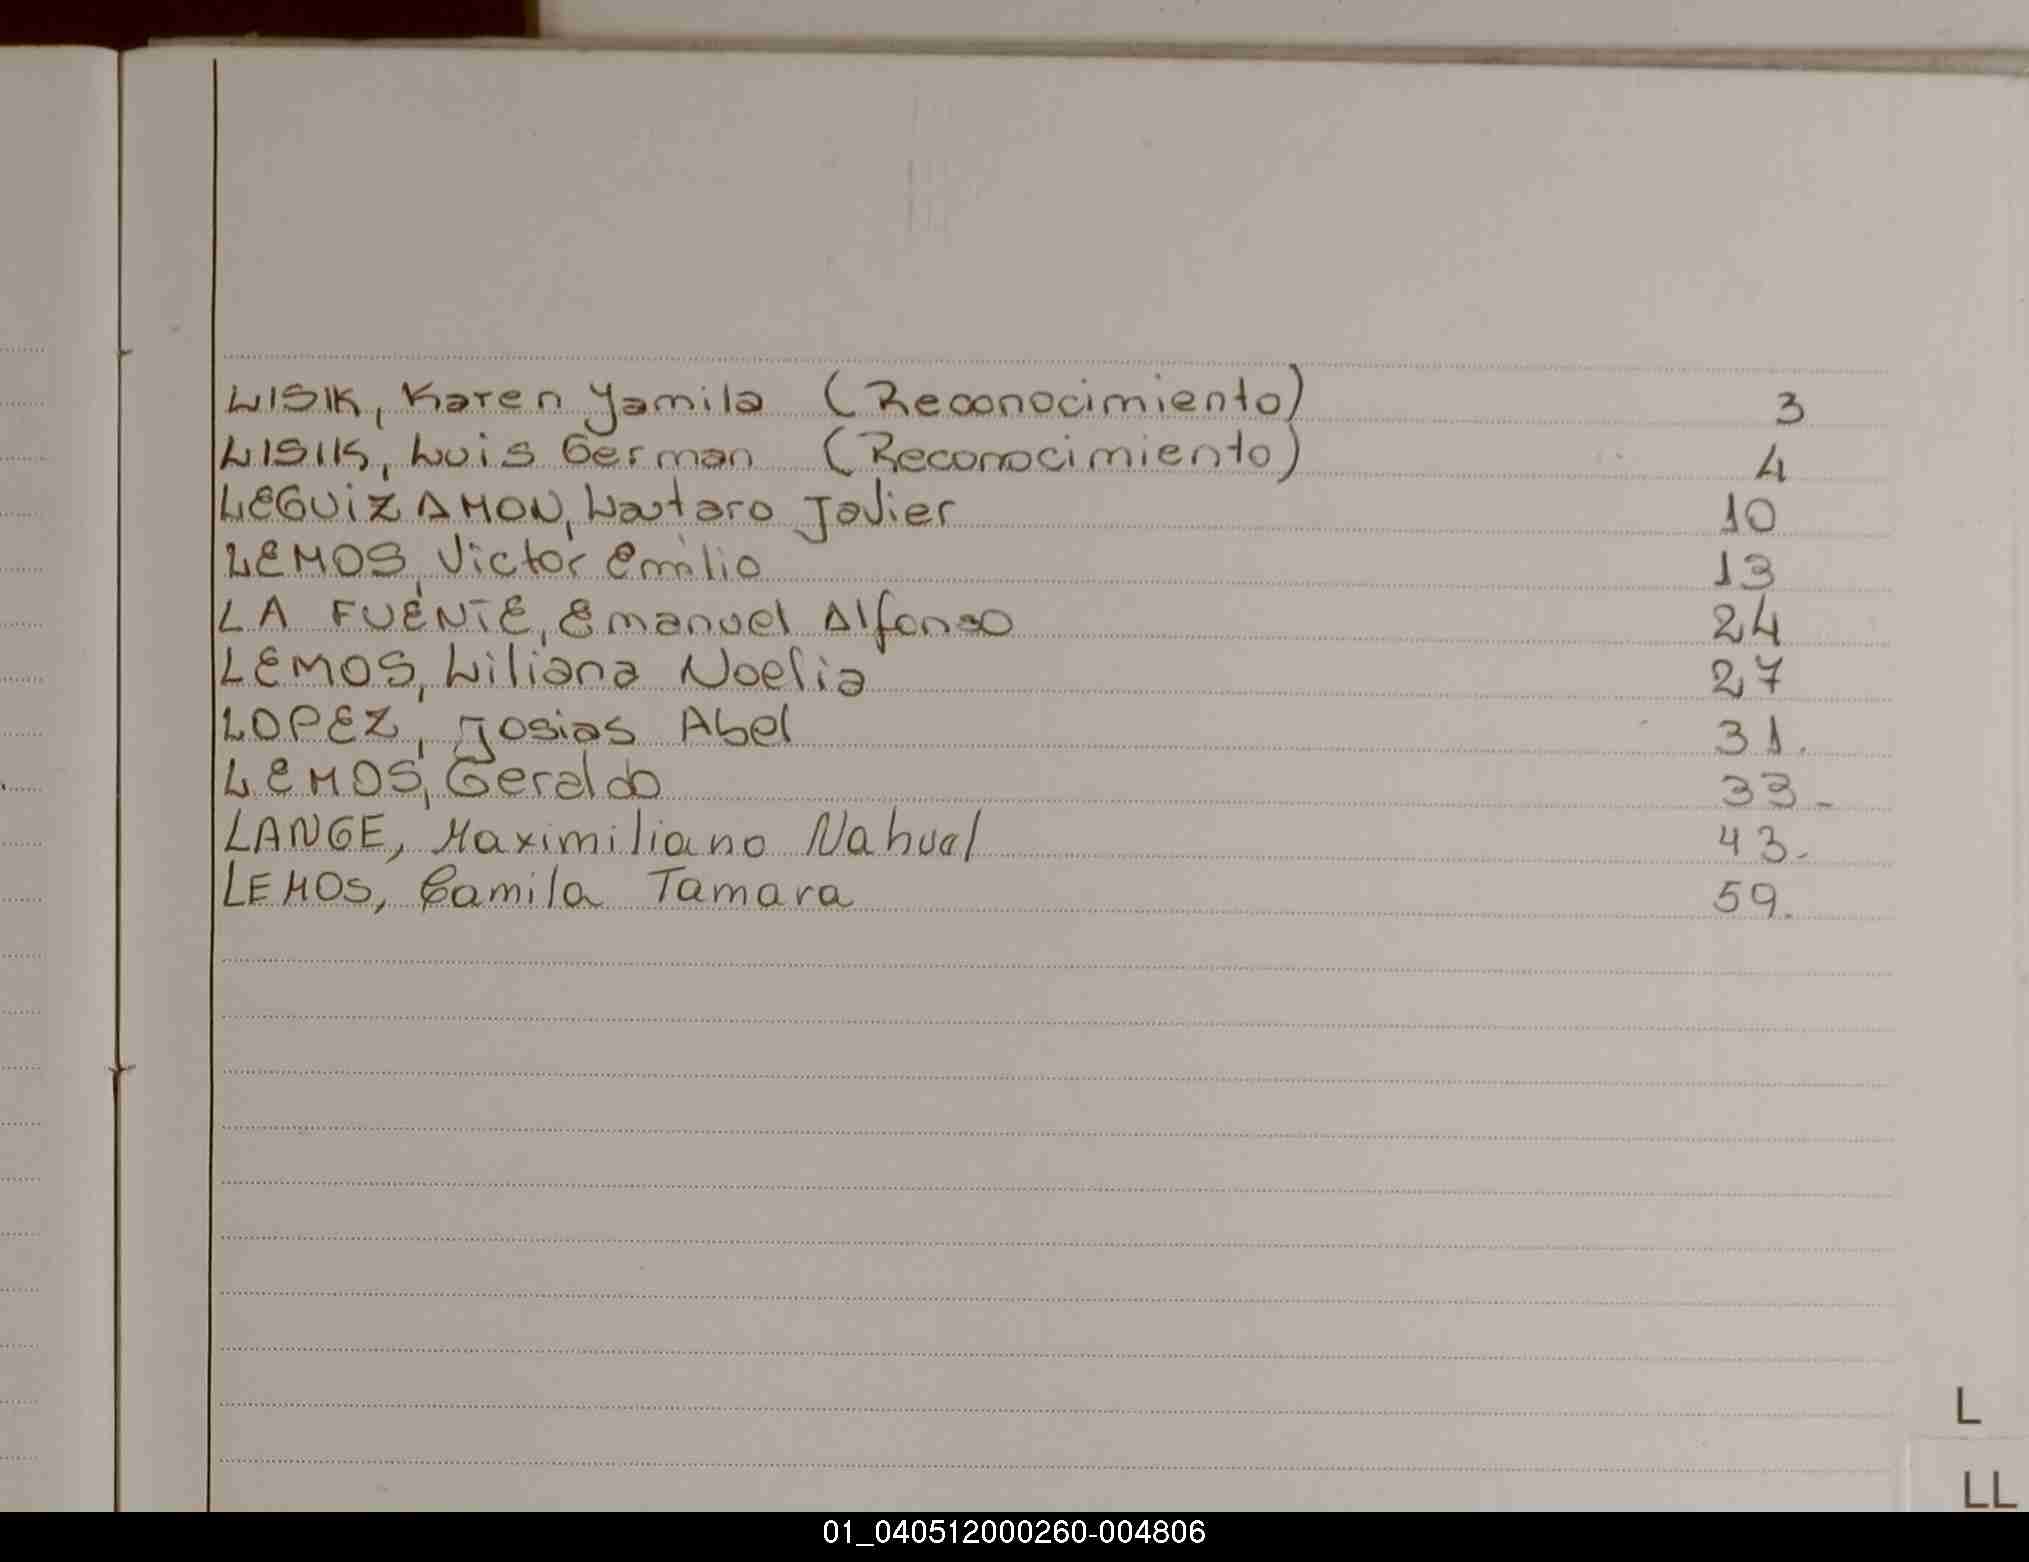 LISIK, Karen Yamila (Reconocimiento) 3
LISIK, Luis German (Reconocimiento) 4
LEGUIZAMON, Lautaro Javier 10
LEMOS, Victor Emilio 13
LA FUENTE, Emanuel Alfonso 24
LEMOS, Liliana Noelia 27
LOPEZ, Josias Abel 31.
LEMOS, Geraldo 33-
LANGE, Maximiliano Nahuel 43-
LEMOS, Camila Tamara 59.
L
LL
01_040512000260-004806